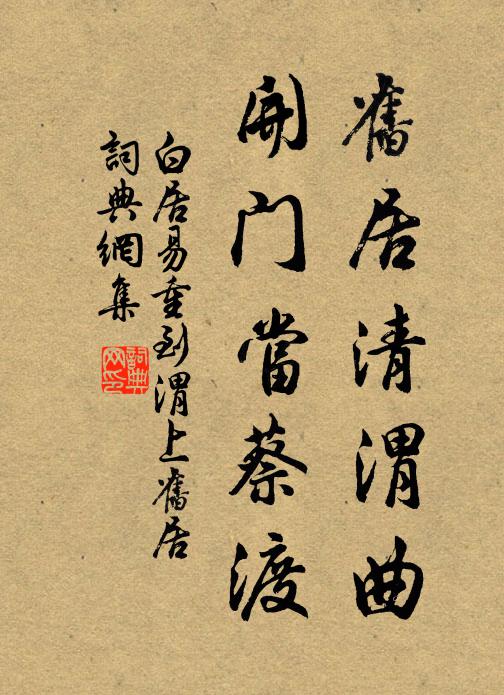 舊居清渭曲
開門當蔡渡
白居易重到渭上舊居
詞典網集
詞典网印